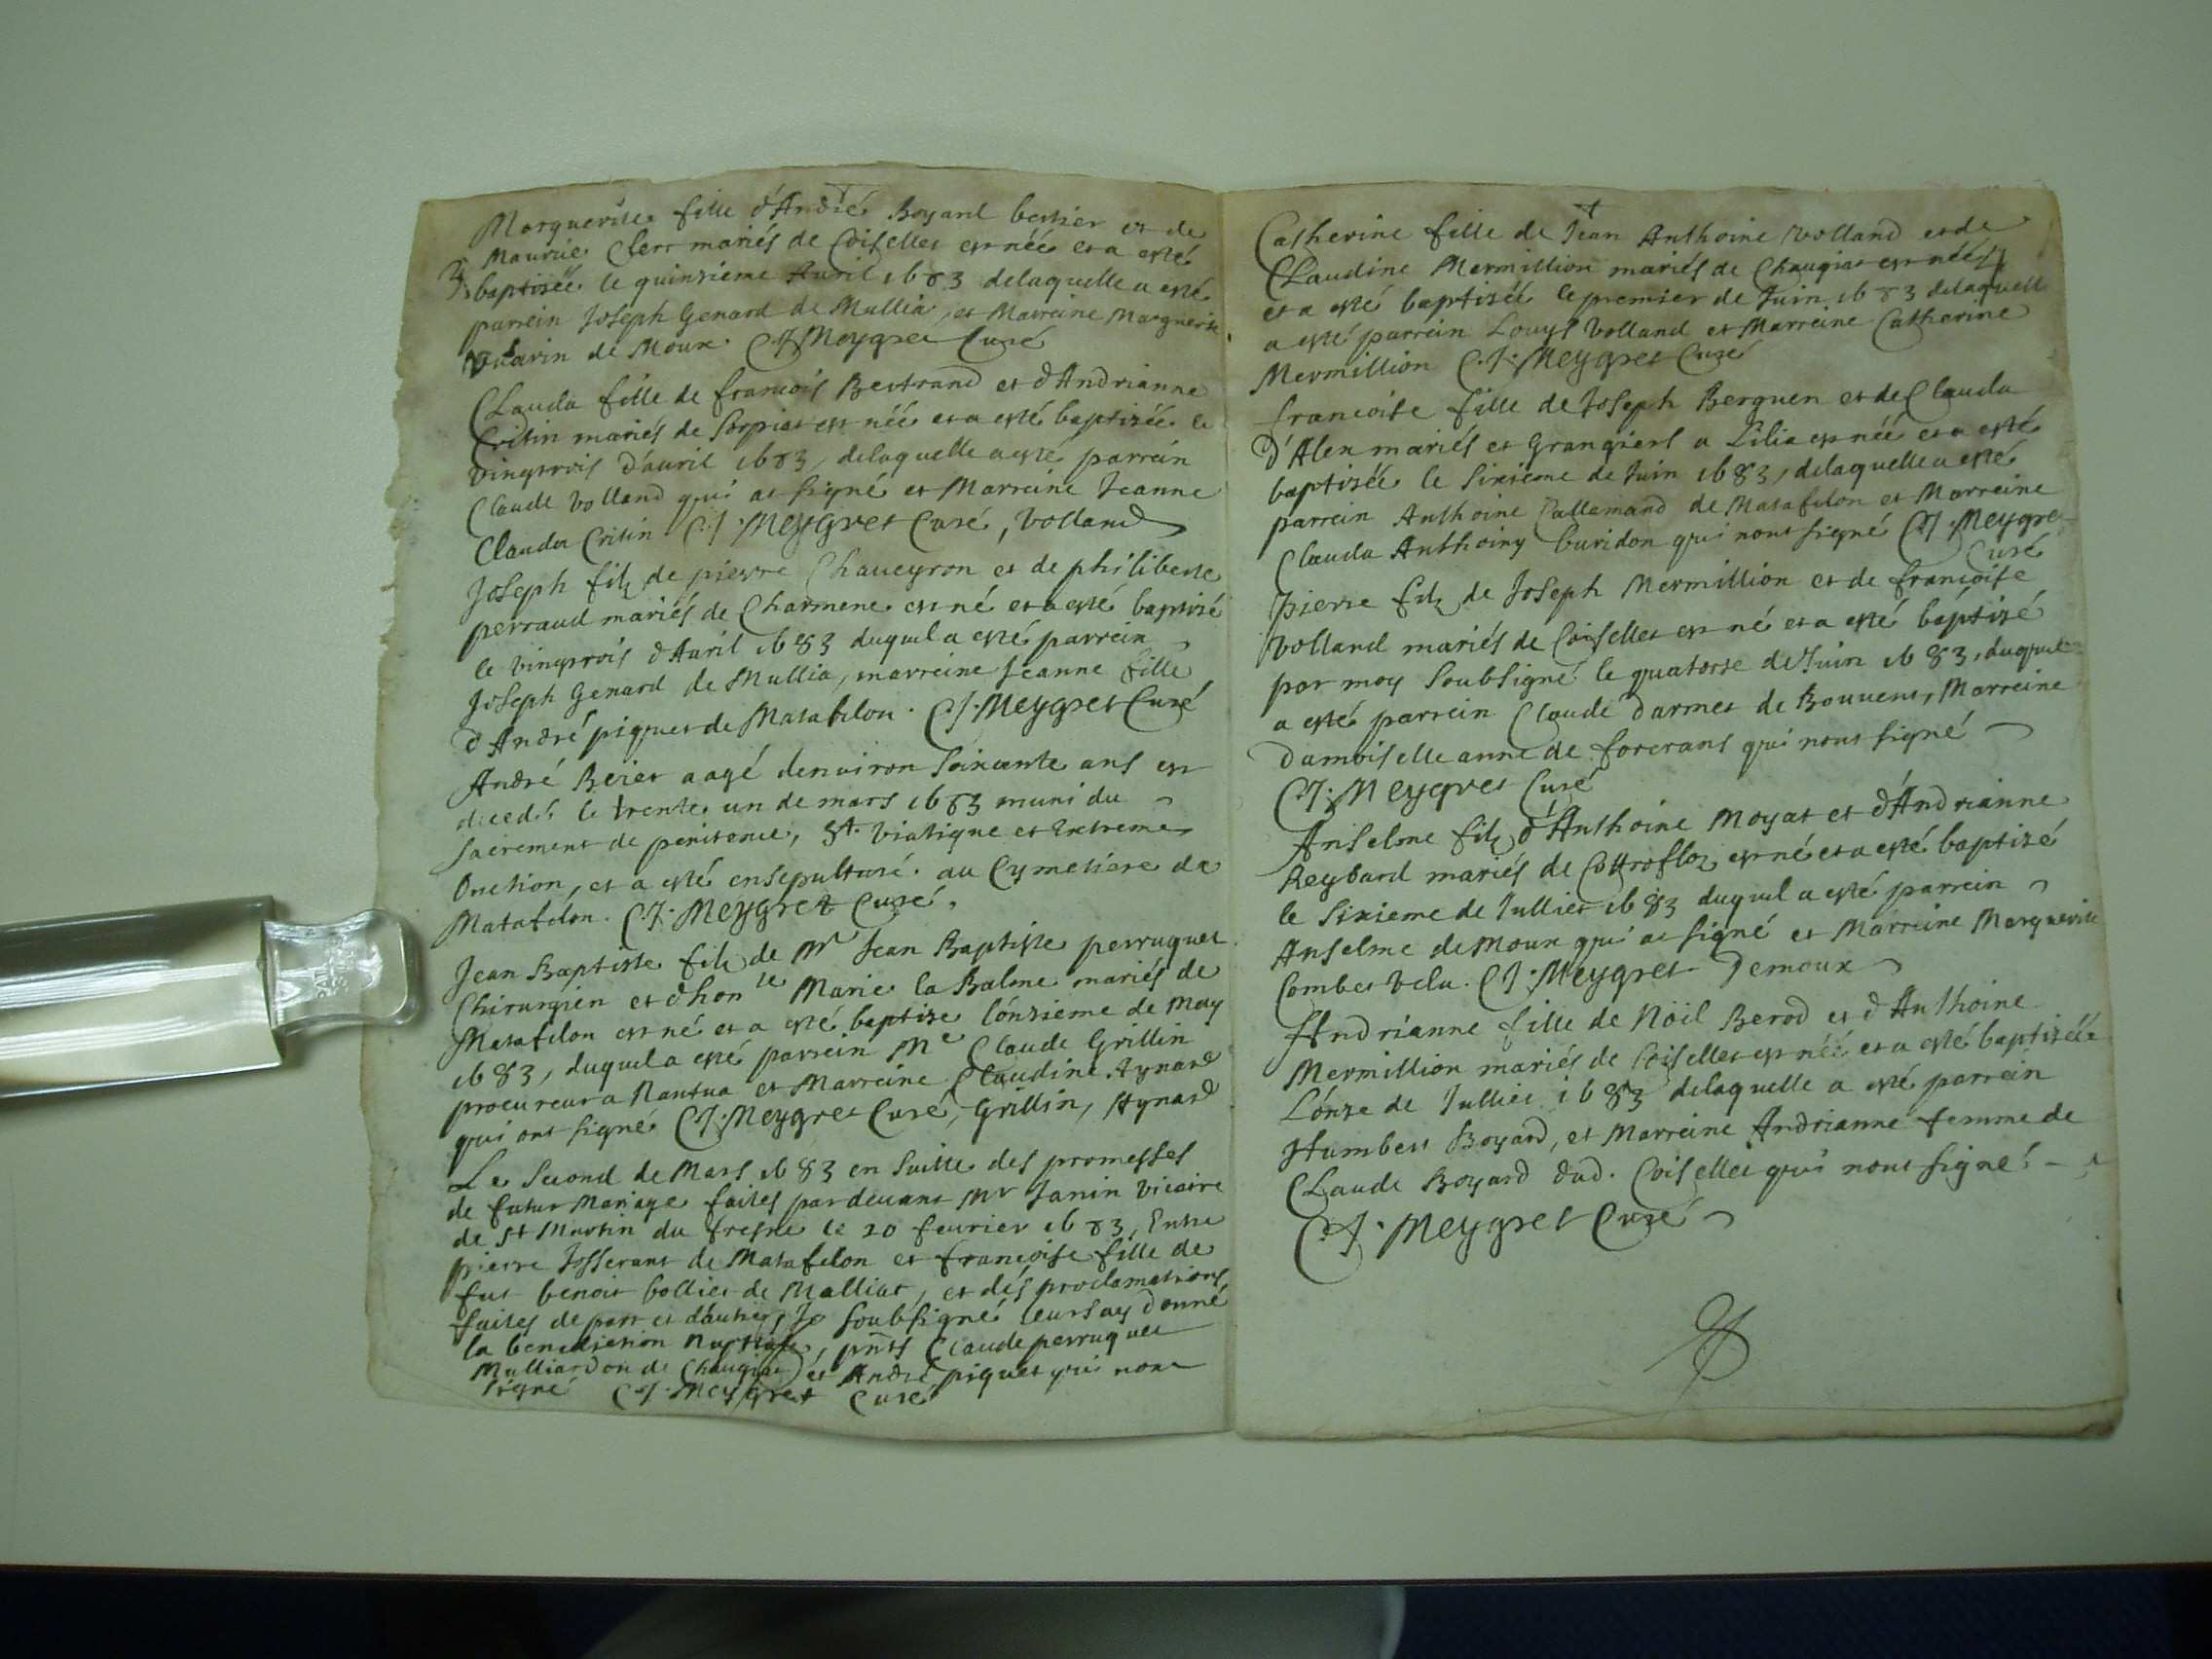 Marguerite fille d'André Boyard bertier et de
Maurise Clerc mariés de Coiselles est née et a esté
baptisée le quinsieme Auril 1683 delaquelle a esté
parrein Joseph Genard de Mullia, et Marreine Marguerite
de Moux. C.J. Meygret Curé
CLauda fille de francois Bertrand et d'Andrianne
Critin mariés de Sorpiat est née et a esté baptizée le
vingtrois d'auril 1683, delaquelle a esté parrein
Claude Volland qui at signé et Marreine Jeanne
Clauda Critin C.J. Meygret Curé, Volland
Joseph filz de pierre Chaueyron et de philiberte
perraud mariés de Charmene est né et a esté baptizé
le vingtrois d'Auril 1683 duquel a esté parrein
Joseph Genard de Mullia, marreine Jeanne fille
d'André piquet de Matafelon. C.J. Meygret Curé
André Beier aagé denuiron Soixante ans est
decedé le trente un de mars 1683 muni du
sacrement de penitence, St. Viatique et Extreme
Onction, et a esté ensepulturé au Cymetiere de
Matafelon. C.J. Meygret Curé.
Jean Baptiste filz de Mr Jean Baptiste perruquet
Chirurgien et d'honle Marie la Balme mariés de
Matafelon est né et a esté baptize l'onsieme de May
1683, duquel a esté parrein Me Claude Grillin
procureur a Nantua et Marreine Claudine Aynard
qui ont signé C.J. Meygret Curé, Grillin, Aynard
Le Second de Mars 1683 en suitte des promesses
de futur Mariage faites pardeuant Mr Janin Vicaire
de St Martin du fresne le 20 feurier 1683, Entre
pierre Josserant de Matafelon et francoise fille de
fut benoit bollier de Malliat, et des proclamations
faites de part et d'autre, Je soubsigné leurs ay donné
la benediction Nuptiale, pnts Claude perruquet
Mulliardon de Chaugiat et André piquet qui nont
signé C.J. Meygret Curé
Catherine fille de Jean Anthoine Volland et de
CLaudine Mermillion mariés de Chaugiat est née
et a esté baptizée le premier de Juin 1683 delaquelle
a esté parrein Louys Volland et Marreine Catherine
Mermillion C.J. Meygret Curé
francoise fille de Joseph Berguen et de Clauda
d'Alex mariés et Grangiers a Lilia est née et a esté
baptizée le Sixieme de Juin 1683, delaquelle a esté
parrein Anthoine Callamand de Matafelon et Marreine
Clauda Anthoiny buridon qui nont signé C.J. Meygret
Curé
Pierre filz de Joseph Mermillion et de francoise
Volland mariés de Coiselles est né et a esté baptizé
par moy soubsigné le quatorse de Juin 1683, duquel
a esté parrein Claude darmet de Bouuent, Marreine
damoiselle anne de forcrans qui nont signé
C.J. Meygret Curé
Anselme filz d'Anthoine Moyat et d'Andrianne
Reybard mariés de Cottrofloz est né et a esté baptizé
le Sixieme de Jullier 1683 duquel a esté parrein
Anselme de Moux qui at signé et Marreine Marguerite
Combet Vela. C.J. Meygret Demoux
Andrianne fille de Noël Berod et d'Anthoine
Mermillion mariés de Coiselles est née et a esté baptizée
L'onze de Jullier 1683 delaquelle a esté parrein
Humbert Boyard, et Marreine Andrianne femme de
CLaude Boyard dud. Coiselles qui nont signé
C.J. Meygret Curé